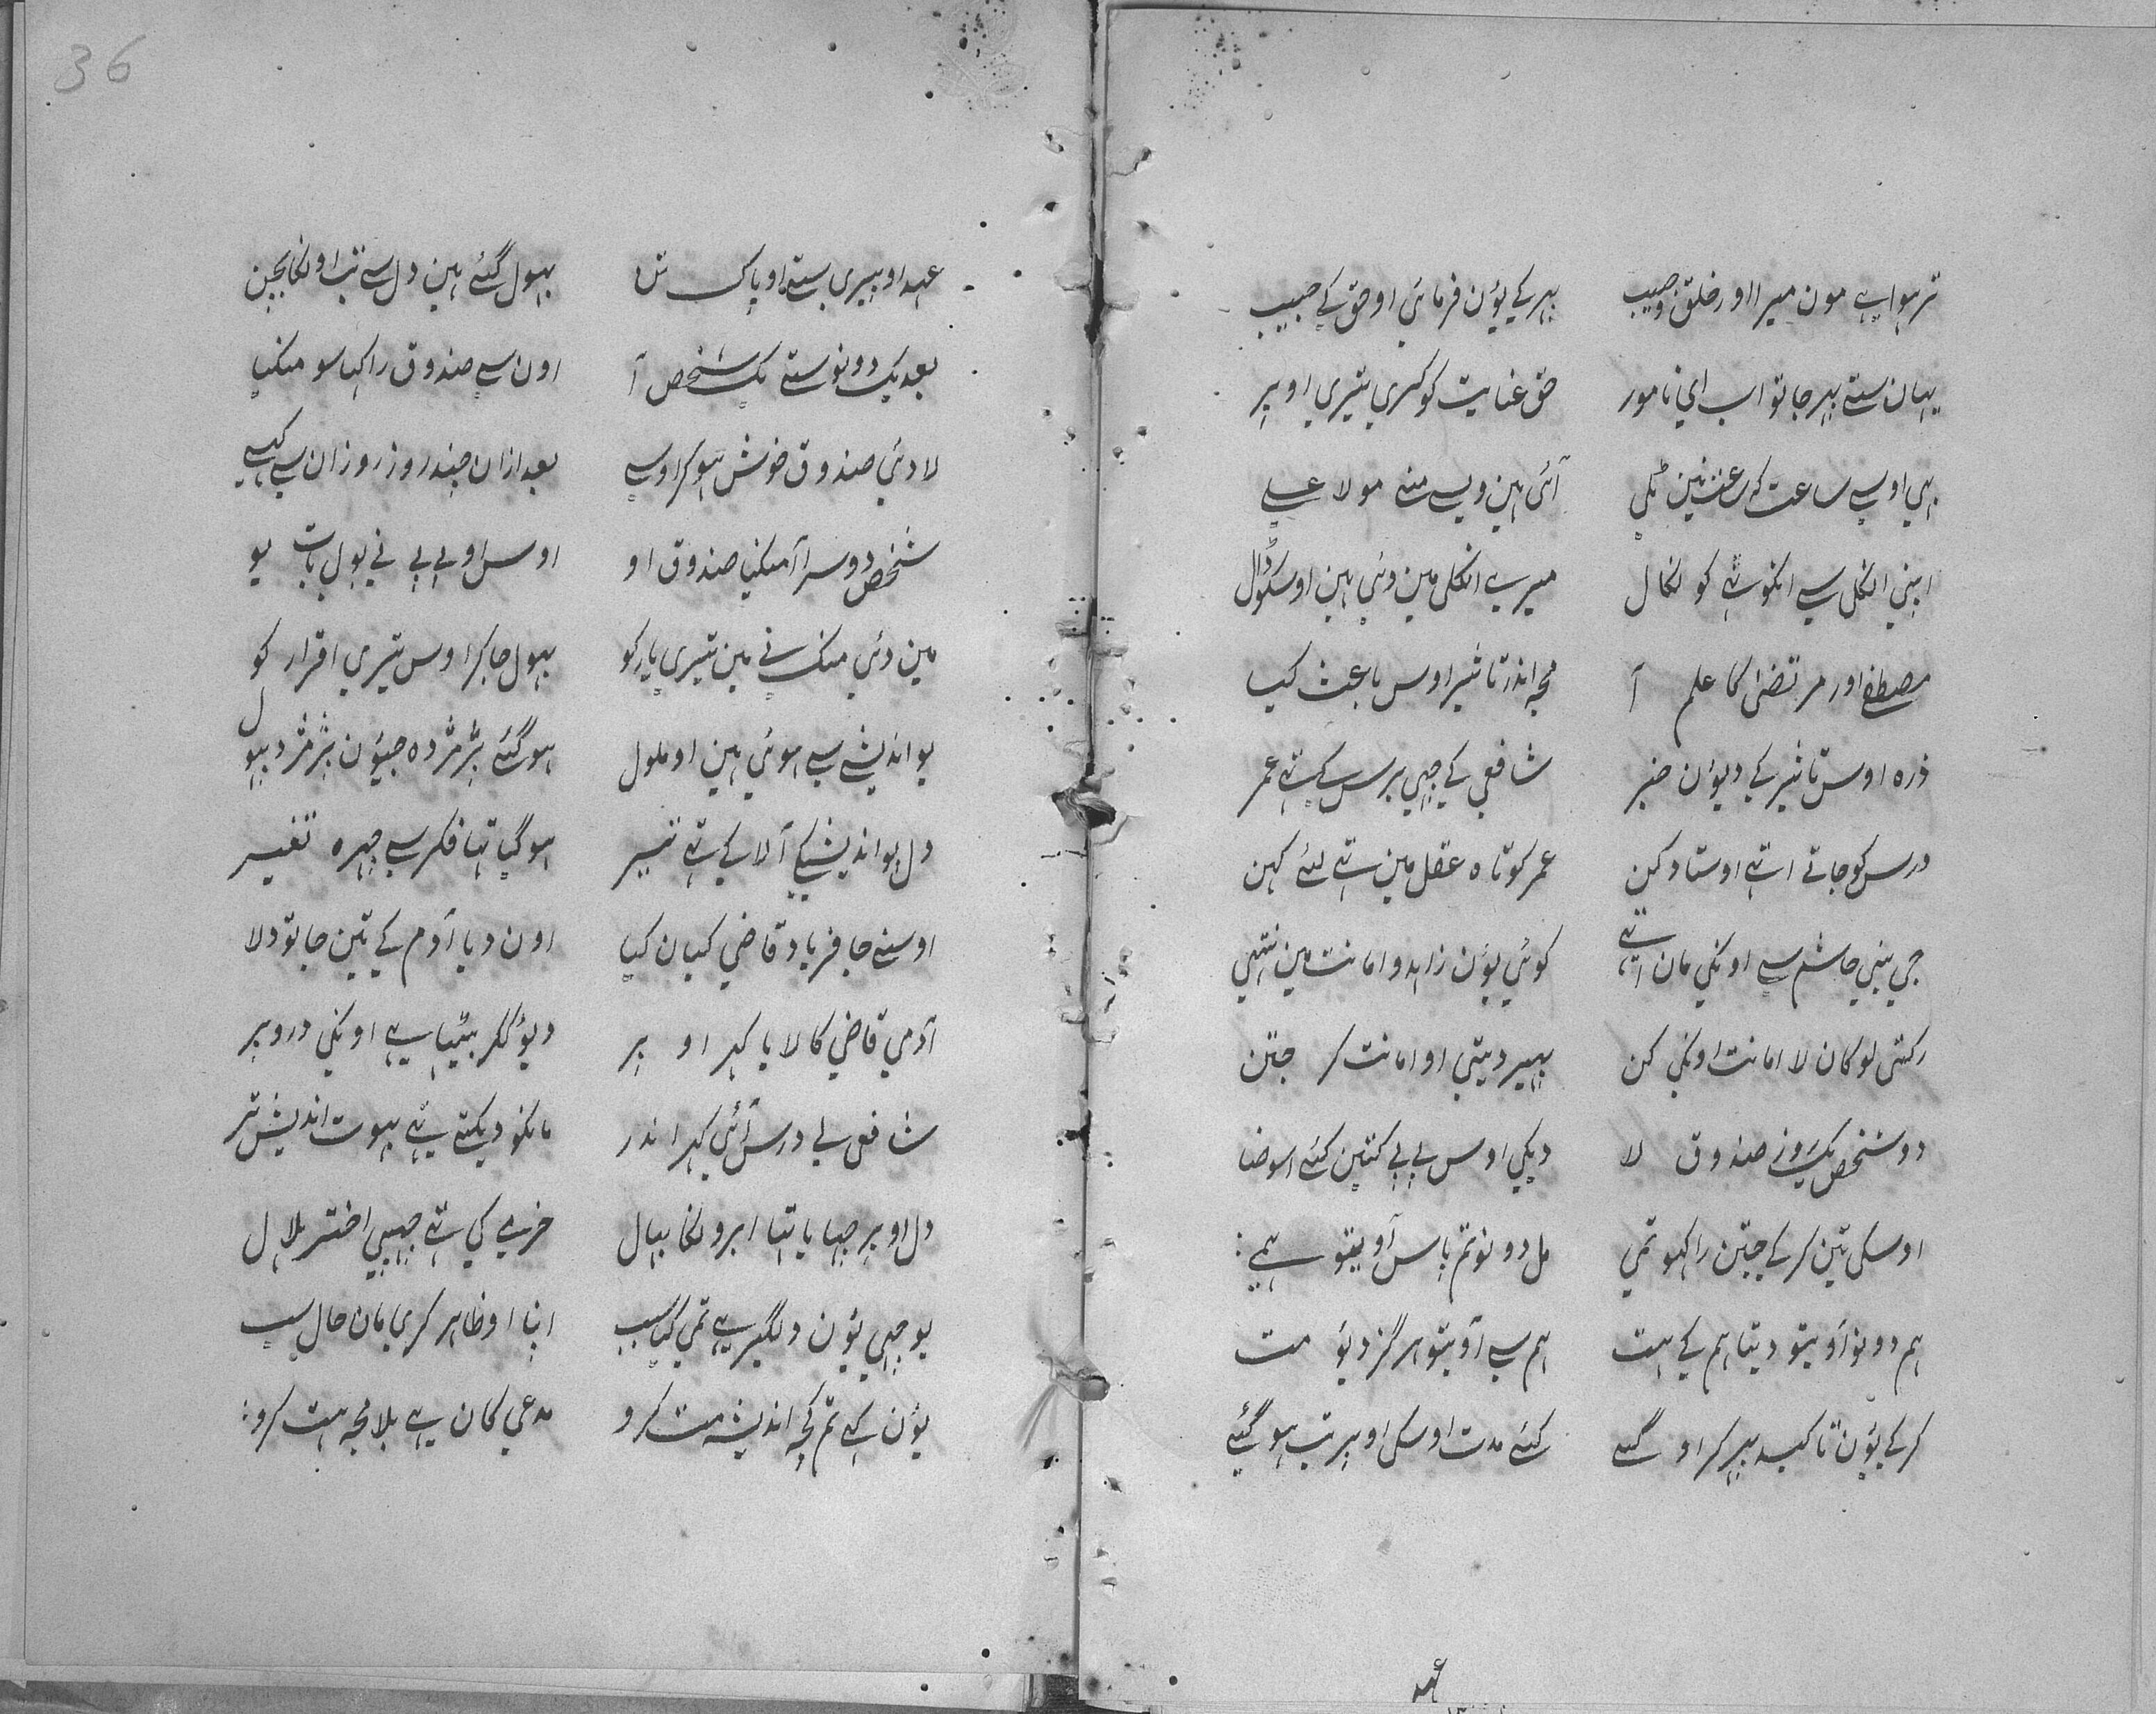 تر ہوا ہے مون میرا اور خلق حبیب پہر کے یؤن فرمائی او حق کے حبیب
یہان ستے پہر جا تو اب ای نامور حق عنایت کو کری تیری اوپر
ہی اوسے ساعت کہ آئی ہین ویسے منے مولا علے
اپنی انگل سے انگوٹہے کو نکال میرے انگلی مین دئی ہین اوسکو ڈال
مصطفے اور مرتضی کا علم آ مجہ اندر تاثیر اوس باعث کیا
ذرہ اوس تاثیر کے دیوان خبر شافعی کے جہی برس کے تہے عمر
درس کو جاتے اتہے اوستاد کن عمر کوتاہ عقل مین تہے لئے کہن
جی بنی ہاشم سے اونکی مان اتہے کوئی یؤن زاہد و امانت مین نتہی
رکتی لوکان لا امانت اونکی کن پہیر دیتی او امانت کر جتن
دو شخص یک روز صندوق لا دیکی اوس بے بے کنتین کئے اسو ضا
اوسکی تین کر کے جتن راکہو تمی مل دونو تم پاس آویتو ہمے
ہم دونو آویتو دیتا ہم کے ہت ہم سے آویتو ہرگز دیؤ مت
کر کے یؤن تاکید پہر کر او گئے کئے مدت اوسکی اوپر تب ہو گئے
عہد او پیری ستے او پاک تن بہول گئے ہین دل سے تب اونکا بچن
بعد یک دونو ستے یک شخص آ اون سے صندوق راکہیا سو منگیا
لا دئی صندوق خوش ہو کر اوسے بعد ازان چند روز روزان سے کہے
شخص دوسرا آ منگیا صندوق او اوس او بے بے نے بول بات یو
مین دئی منگنے مین تیری یار کو بہول جا کر اوس تیری اقرار کو
یو اندیشے سے ہوئی ہین او ملول ہو گئے پژمردہ جیؤن پژمردہ پہول
دل یو اندیشیکے آلا کے تہے تیر ہو گیا تہا فکر سے چہرہ تغیر
اوسنے جا فریاد قاضی کیان کیا اون دیا آدم کے تین جا تو دلا
آدمی قاضی کا لا یا گہر اوپر دیؤ ککر بیٹیا ہے اونکی در و پر
شافعی لے درس آئی گہر اندر مانکو دیکتے تہے بہوت اندیش تر
دل اوپر چہپا یا تہا ابرو نکا ہلال خرمے کی تہے چہپی اختر ہلال
یو جہی یؤن دلگیر ہے تمی کیا سبب اپنا او ظاہر کری مان حال سب
یؤن کہے تم کچہ اندیشہ مت کرو مدعی کان ہے بلا مجہ ہت کرو
36